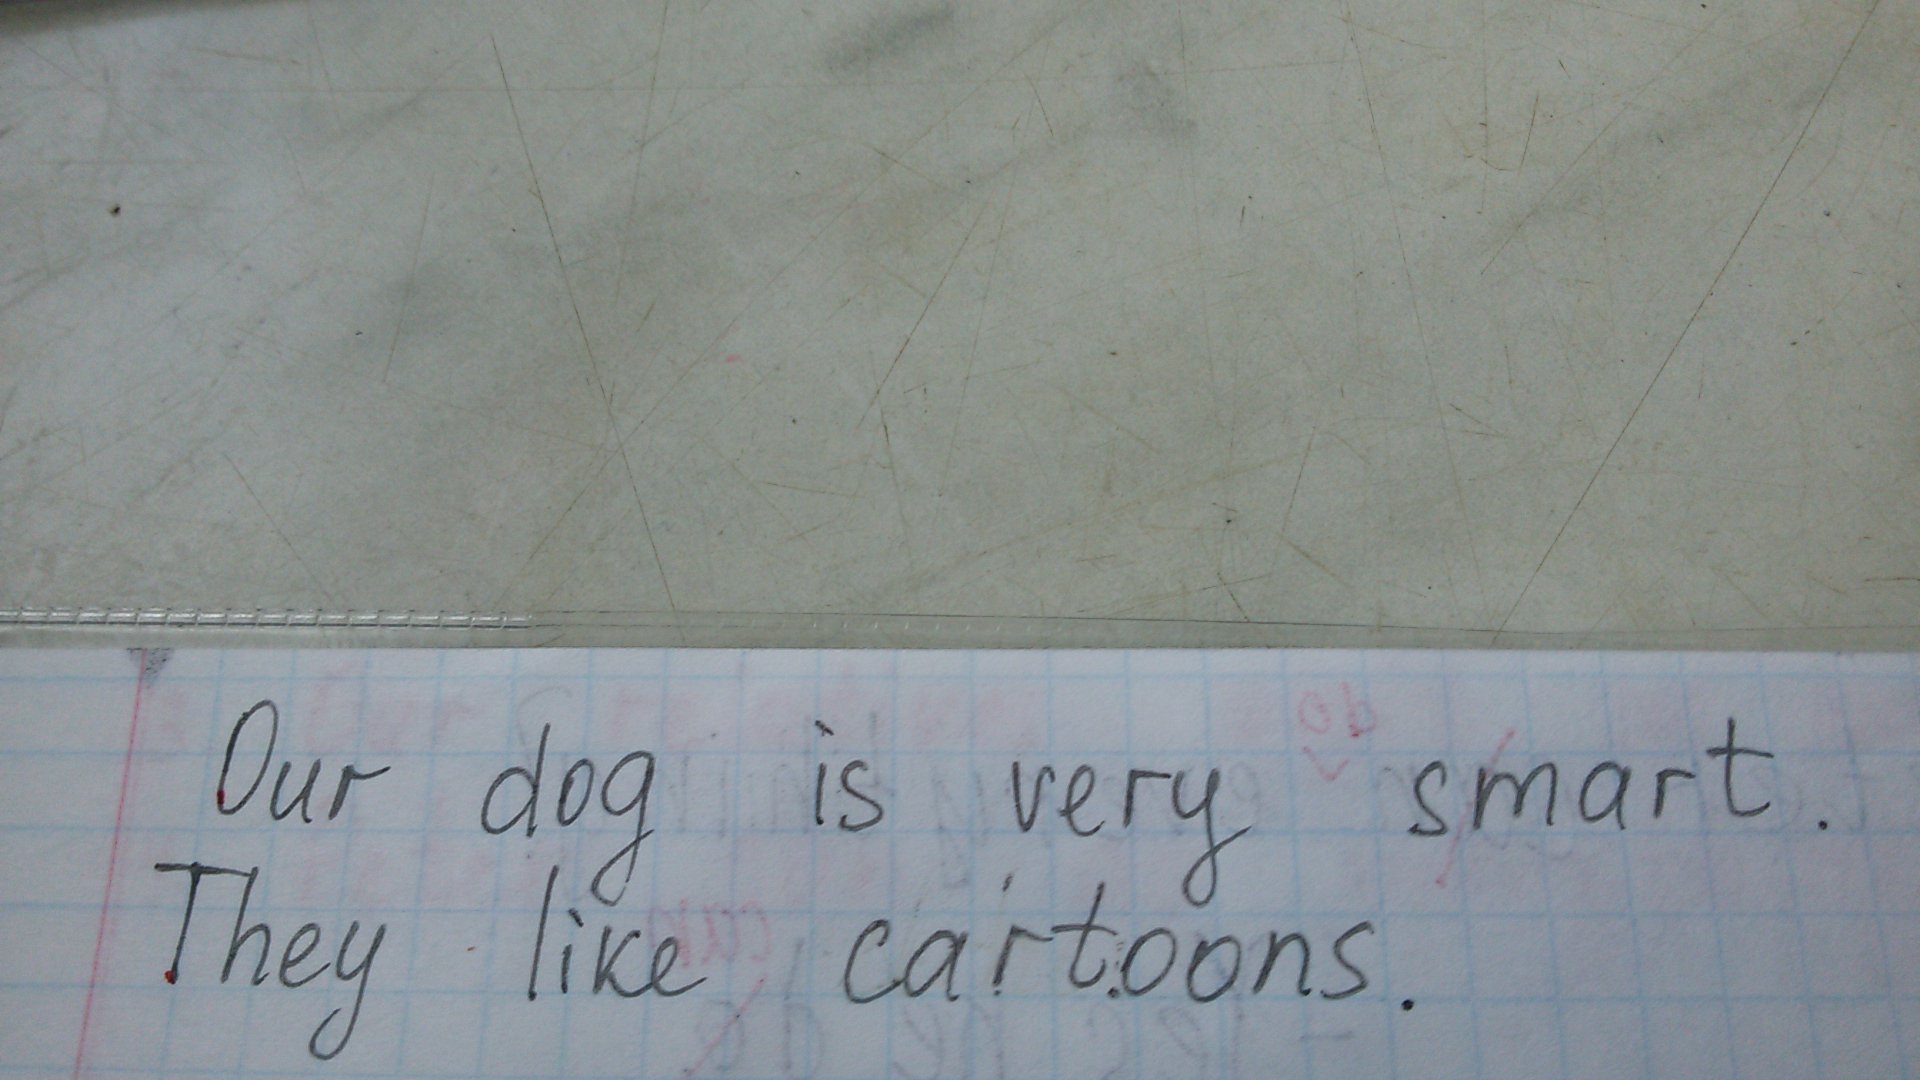 Our dog is very smart.
They like cartoons.